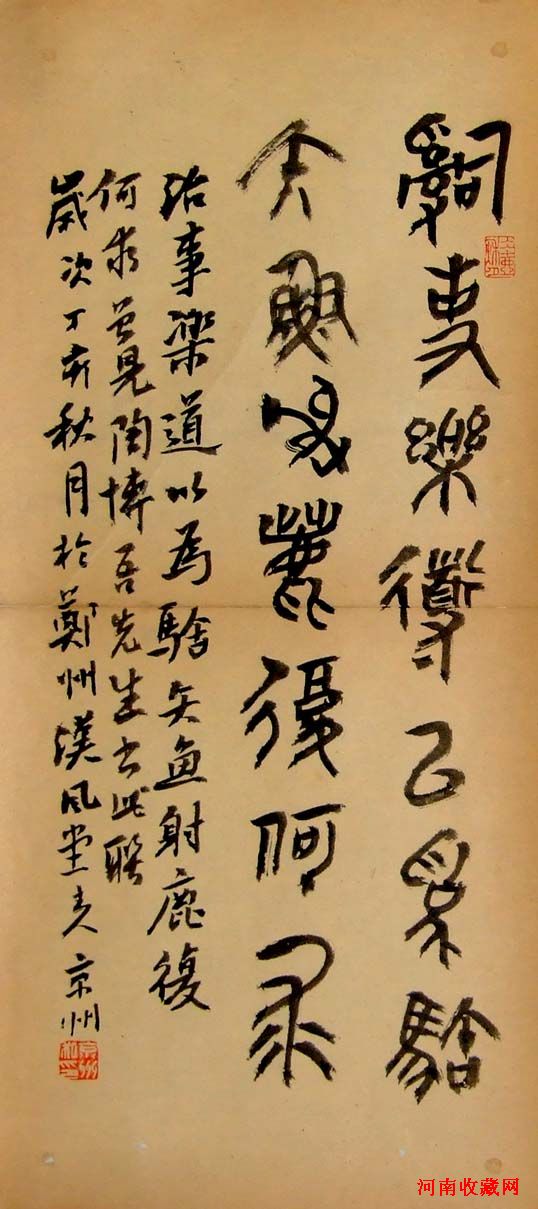 𤔲事樂道以為駘
矢魚射鹿復何求
治事樂道以為駘矢魚射鹿復
何求曾見陶博吾先生書此聯
歲次丁亥秋月於鄭州漢風堂京州
河南收藏网